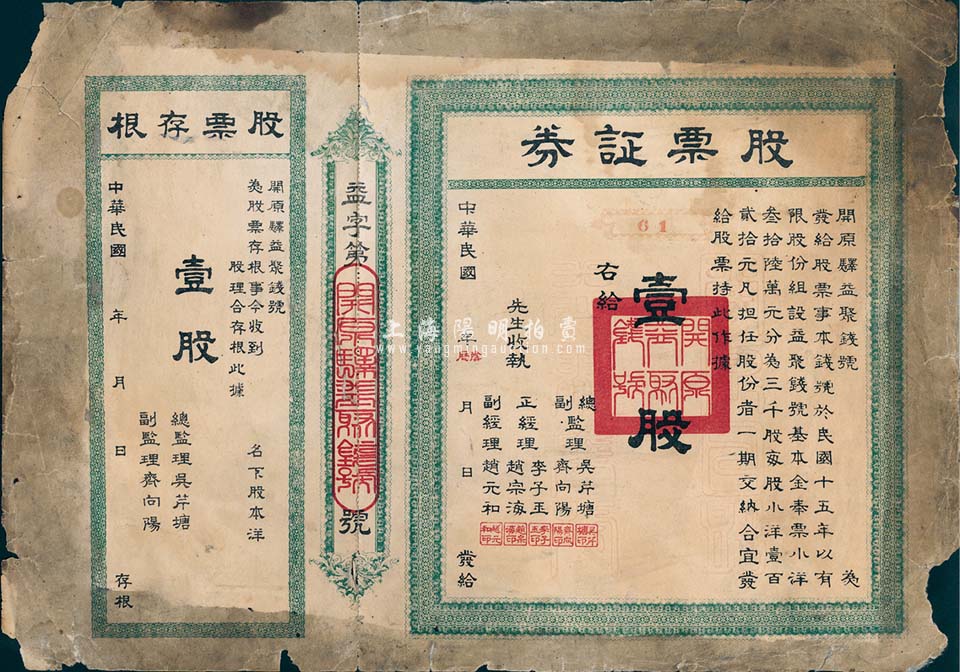 股票証券
開原驛益聚錢號 為
發給股票事本錢號於民國十五年以有
限股份組設益聚錢號基本金奉票小洋
叁拾陸萬元分為三千股每股小洋壹百
貳拾元凡担任股份者一期交納合宜發
給股票持此作據
61
壹股
開原
益聚
錢號
右給
先生收執
總監理 吳芹塘
副監理 齊向陽
正經理 李子玉
趙宗海
副經理 趙元和
吳芹塘印
齊向陽印
李子玉印
趙宗海印
趙元和印
中華民國 年 月 日 發給
益字第 號
開原驛益聚錢號
股票存根
開原驛益聚錢號
為股票存根事今收到
名下股本洋
股理合存根此據
壹股
總監理吳芹塘
副監理齊向陽
中華民國 年 月 日 存根
上海陽明拍賣
www.yangmingauction.com